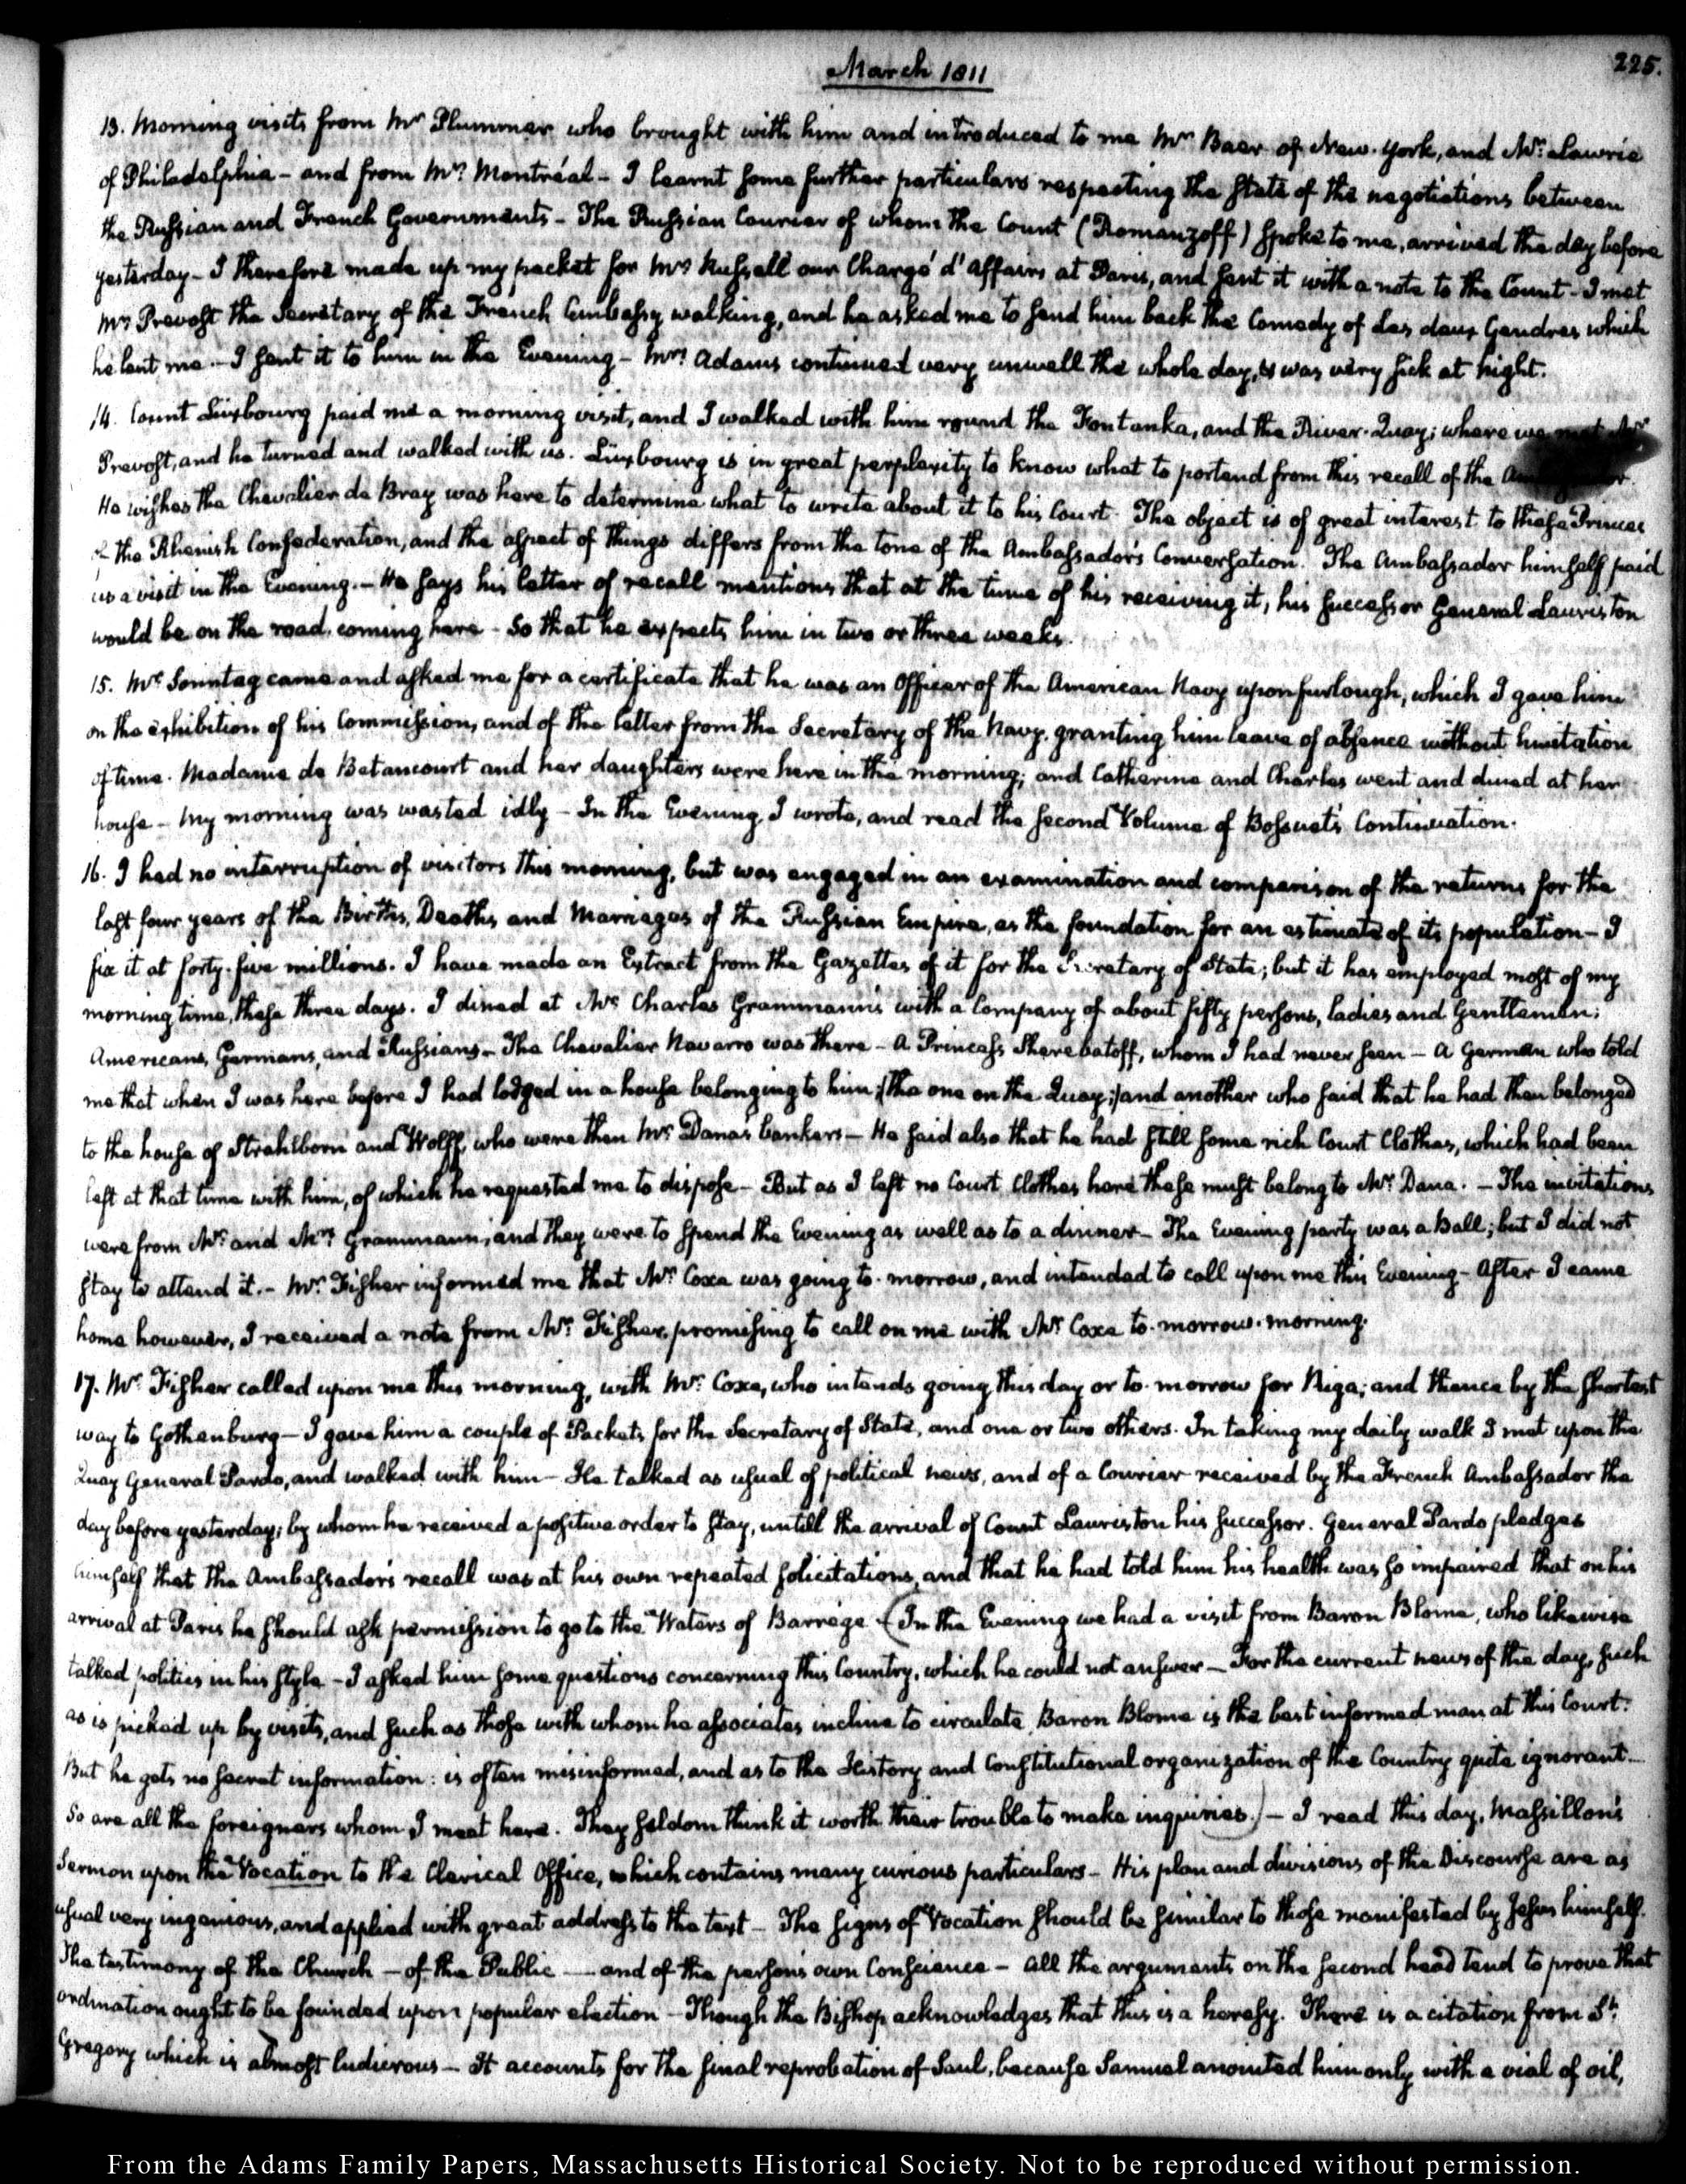 March 1811
225.
13. Morning visits from Mr. Plummer who brought with him and introduced to me Mr. Baer of New-York, and Mr. Lawrie
of Philadelphia – and from Mr. Montréal – I learnt some further particulars respecting the state of the negotiations between
the Russian and French Governments – The Russian Courier of whom the Count (Romanzoff) spoke to me, arrived the day before
yesterday – I therefore made up my packet for Mr. Russell our Chargé d'affaires at Paris, and sent it with a note to the Count – I met
Mr. Prevost the Secretary of the French Embassy walking, and he asked me to send him back the Comedy of Les deux Gendres which
he lent me – I sent it to him in the Evening – Mrs. Adams continued very unwell the whole day, & was very sick at night.
14. Count Luxbourg paid me a morning visit, and I walked with him round the Fontanka, and the River-Quay; where we met Mr.
Prevost, and he turned and walked with us. Luxbourg is in great perplexity to know what to portend from this recall of the
He wishes the Chevalier de Bray was here to determine what to write about it to his Court. The object is of great interest to these Princes
of the Rhenish Confederation, and the aspect of things differs from the tone of the Ambassador's Conversation. The Ambassador himself paid
us a visit in the Evening. – He says his letter of recall mentions that at the time of his receiving it, his successor General Lauriston
would be on the road, coming here – So that he expects him in two or three weeks.
15. Mr. Sonntag came and asked me for a certificate that he was an Officer of the American Navy upon furlough, which I gave him
on the exhibition of his Commission, and of the letter from the Secretary of the Navy, granting him leave of absence without limitation
of time. Madame de Betancourt and her daughters were here in the morning; and Catherine and Charles went and dined at her
house – My morning was wasted idly – In the Evening, I wrote, and read the second Volume of Bossuet's Continuation.
16. I had no interruption of visitors this morning, but was engaged in an examination and comparison of the returns for the
last four years of the Births, Deaths, and Marriages of the Russian Empire, as the foundation for an estimate of its population – I
fix it at forty-five millions. I have made an Extract from the Gazettes of it for the Secretary of State; but it has employed most of my
morning time, these three days. I dined at Mr. Charles Grammann's with a Company of about fifty persons, ladies and Gentlemen;
Americans, Germans, and Russians – The Chevalier Navarro was there – A Princess Sherebatoff, whom I had never seen – A German who told
me that when I was here before I had lodged in a house belonging to him; (the one on the Quay;) and another who said that he had then belonged
to the house of Strahlborn and Wolff, who were then Mr. Dana's bankers – He said also that he had still some rich Court Clothes, which had been
left at that time with him, of which he requested me to dispose – But as I left no Court Clothes here these must belong to Mr. Dana. – The invitations
were from Mr. and Mrs. Grammann, and they were to spend the Evening as well as to a dinner – The Evening party was a Ball; but I did not
stay to attend it. – Mr. Fisher informed me that Mr. Coxe was going to-morrow, and intended to call upon me this Evening – After I came
home however, I received a note from Mr. Fisher, promising to call on me with Mr. Coxe to-morrow-morning.
17. Mr. Fisher called upon me this morning, with Mr. Coxe, who intends going this day or to-morrow for Riga; and thence by the shortest
way to Gothenburg – I gave him a couple of Packets for the Secretary of State, and one or two others. In taking my daily walk I met upon the
Quay General Pardo, and walked with him – He talked as usual of political news, and of a Courier received by the French Ambassador the
day before yesterday; by whom he received a positive order to stay, untill the arrival of Count Lauriston his successor. General Pardo pledges
himself that the Ambassador's recall was at his own repeated solicitations, and that he had told him his health was so impaired that on his
arrival at Paris he should ask permission to go to the Waters of Barrège (In the Evening we had a visit from Baron Blome, who likewise
talked politics in his style – I asked him some questions concerning this Country, which he could not answer – For the current news of the day, such
as is picked up by visits, and such as those with whom he associates incline to circulate, Baron Blome is the best informed man at this Court.
But he gets no secret information: is often misinformed, and as to the History and Constitutional organization of the Country quite ignorant –
So are all the foreigners whom I meet here. They seldom think it worth their trouble to make inquiries.) – I read this day, Massillon's
Sermon upon the Vocation to the Clerical Office, which contains many curious particulars – His plan and divisions of the Discourse are as
usual very ingenious, and applied with great address to the text – The signs of Vocation should be similar to those manifested by Jesus himself.
The testimony of the Church – of the Public – and of the person's own Conscience – All the arguments on the second head tend to prove that
ordination ought to be founded upon popular election – Though the Bishop acknowledges that this is a heresy. There is a citation from St.
Gregory which is almost ludicrous – It accounts for the final reprobation of Saul, because Samuel anointed him only with a vial of oil,
From the Adams Family Papers, Massachusetts Historical Society. Not to be reproduced without permission.